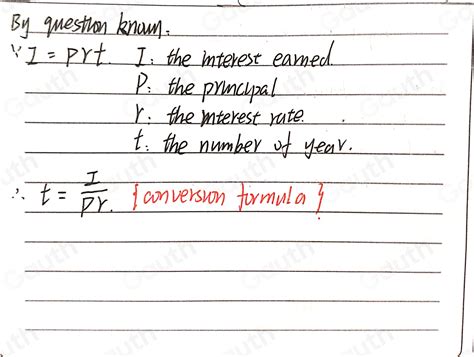 By question known.
∵ I = prt. I: the interest earned
P: the principal
r: the interest rate.
t: the number of year.
∴ t = I/pr. {conversion formula}